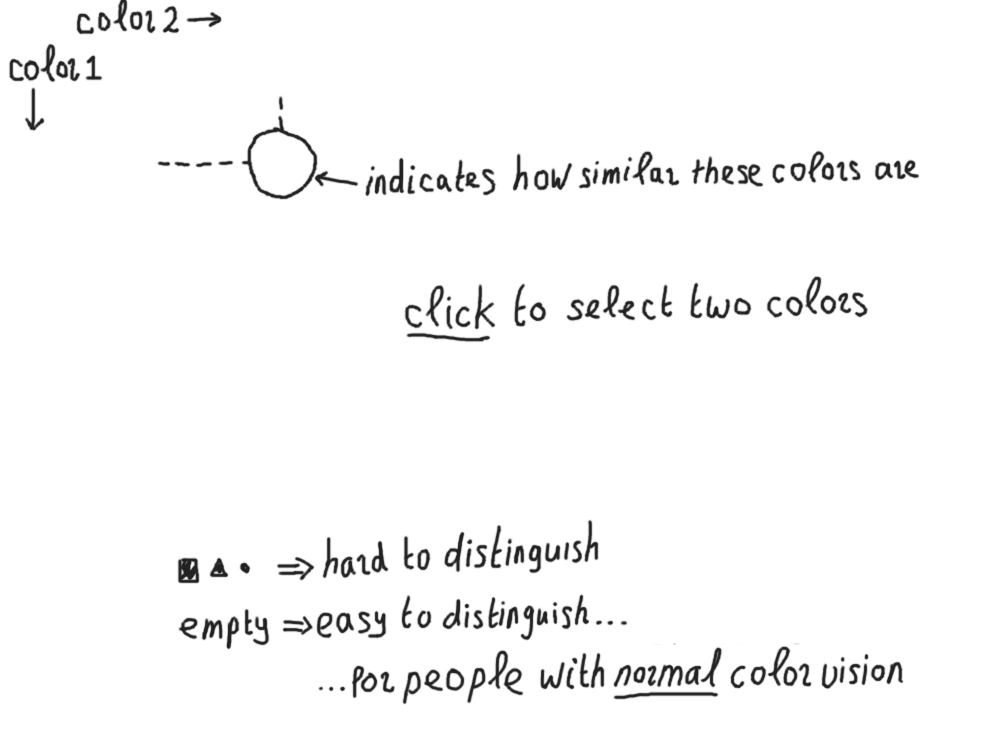 color2 →
color1
↓
← indicates how similar these colors are
click to select two colors
■ ▲ • ⇒ hard to distinguish
empty ⇒ easy to distinguish...
...for people with normal color vision